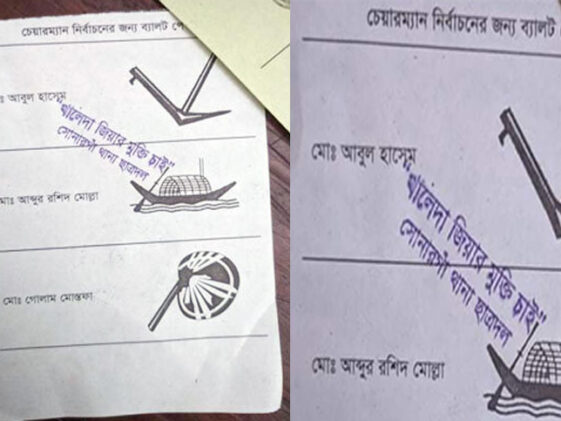 চেয়ারম্যান নির্বাচনের জন্য ব্যালট পে
আবুল হাসেম
"খালেদা জিয়ার মুক্তি চাই"
সোনারগাঁ থানা ছাত্রদল
মোঃ আব্দুর রশিদ মোল্লা
মোঃ গোলাম মোস্তফা
চেয়ারম্যান নির্বাচনের জন্য ব্যালট
মোঃ আবুল হাসেম
"খালেদা জিয়ার মুক্তি চাই"
সোনারগাঁ থানা ছাত্রদল
মোঃ আব্দুর রশিদ মোল্লা